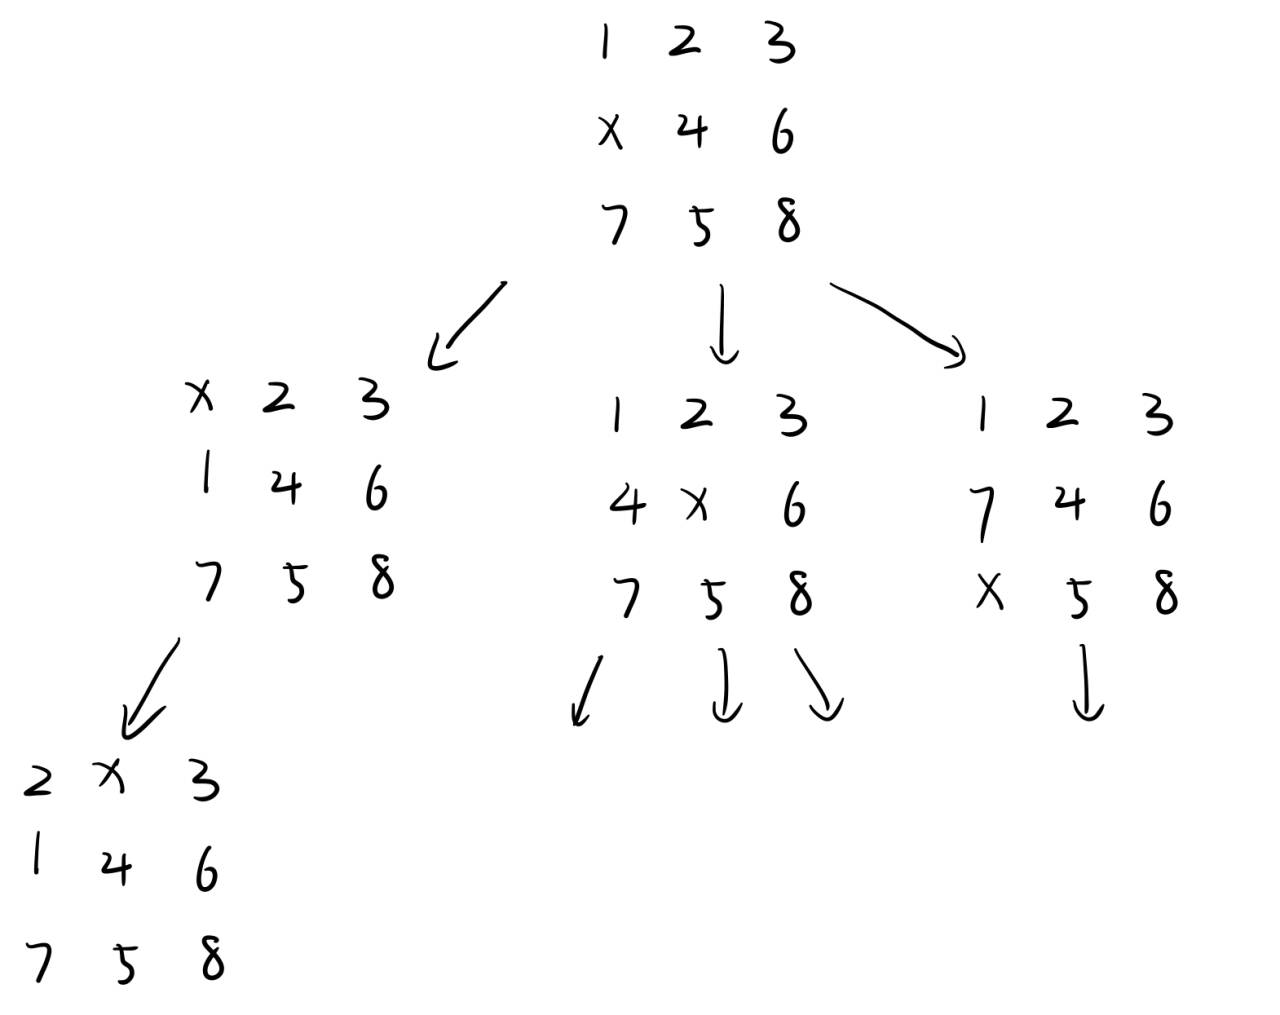 1 2 3
x 4 6
7 5 8
x 2 3
1 4 6
7 5 8
1 2 3
4 x 6
7 5 8
1 2 3
7 4 6
x 5 8
2 x 3
1 4 6
7 5 8